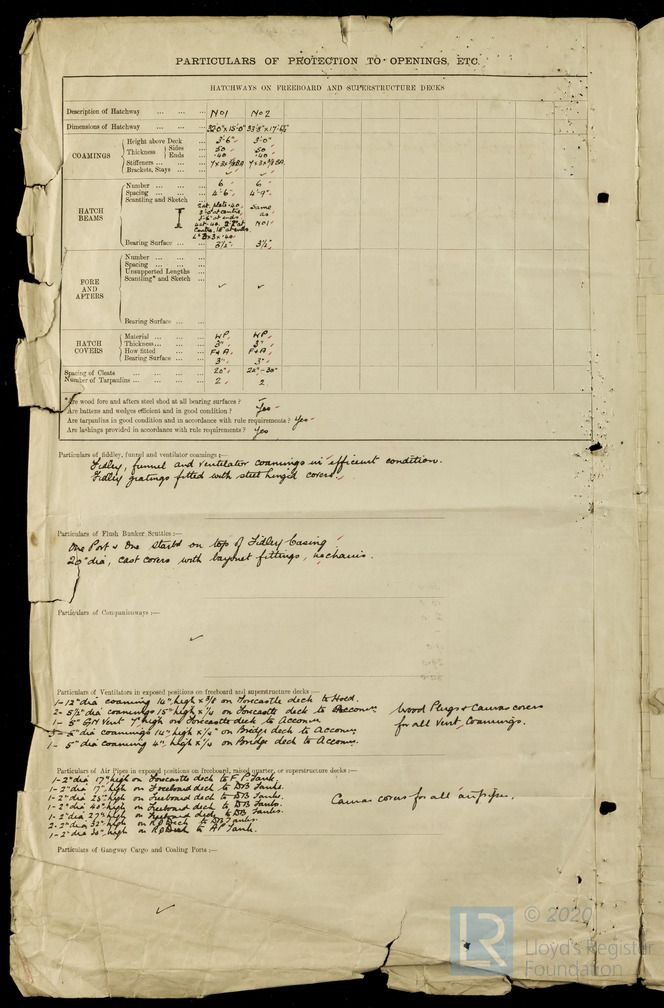 PARTICULARS OF PROTECTION TO OPENINGS, ETC.
HATCHWAYS ON FREEBOARD AND SUPERSTRUCTURE DECKS
Description of Hatchway ... ... ... No1 No2
Dimensions of Hatchway ... ... 32'0"x15'0" 33'
COAMINGS
Height above Deck ... 3'-6" 3'-0"
Thickness Sides ... .50 .50
Ends ... .40 .40
Stiffeners ... ... ...
Brackets, Stays ... ... ✓ ✓
HATCH BEAMS
Number ... ... ... 6 6
Spacing ... ... ... 4'-6" 4'-9"
Scantling and Sketch
plate .40 Same
at centre, as
at ends No1
Bearing Surface ... ... 3½" 3½"
FORE AND AFTERS
Number ... ... ...
Spacing ... ... ...
Unsupported Lengths ...
Scantling* and Sketch ... ✓ ✓
Bearing Surface ... ...
HATCH COVERS
Material ... ... ... W.P. W.P.
Thickness... ... ... 3" 3"
How fitted ... ... F&A F&A
Bearing Surface ... ... 3" 3"
Spacing of Cleats ... ... ... ... 20"
Number of Tarpaulins ... ... ... 2 2
*Are wood fore and afters steel shod at all bearing surfaces ?
Are battens and wedges efficient and in good condition ? Yes
Are tarpaulins in good condition and in accordance with rule requirements ? Yes
Are lashings provided in accordance with rule requirements ? Yes
Particulars of fiddley, funnel and ventilator coamings :—
Fidley, funnel and ventilator coamings in efficient condition.
Fidley gratings fitted with steel hinged covers.
Particulars of Flush Bunker Scuttles :—
One Port & One Starbd on top of Fidley Casing
20" dia, cast covers with bayonet fittings, no chains.
Particulars of Companionways :—
✓
Particulars of Ventilators in exposed positions on freeboard and superstructure decks :—
1- 12" dia coaming 14" high x 3/8 on Forecastle deck to Hold.
2- 5½" dia coamings 15" high x ¼ on Forecastle deck to Accomn. Wood Plugs & Canvas covers
1- 5" G.N Vent 7" high on Forecastle deck to Accomn. for all Vent Coamings.
5" dia coamings 14" high x ¼" on Bridge deck to Accomn.
1- 5" dia coaming 4" high x ¼ on Bridge deck to Accomn.
Particulars of Air Pipes in exposed positions on freeboard, raised quarter, or superstructure decks :—
1- 2" dia 17" high on Forecastle deck to F.P. Tank.
1- 2" dia 17" high on Freeboard deck to DB Tanks.
1- 2" dia 25" high on Freeboard deck to DB Tanks.
1- 2" dia 40" high on Freeboard deck to DB Tanks. Canvas covers for all air pipes.
1- 2" dia 27" high on Freeboard deck to DB Tanks.
2- 2" dia 32" high on RQ Deck to DB Tanks.
1- 2" dia 30" high on RQ Deck to AP Tank.
Particulars of Gangway Cargo and Coaling Ports :—
✓
LR
© 2020
Lloyd's Register
Foundation